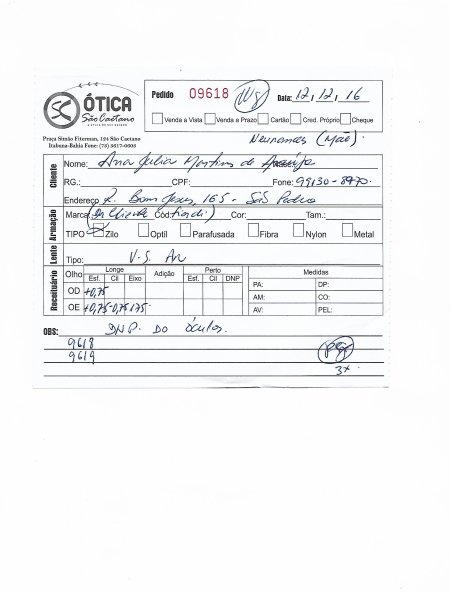 ÓTICA
São Caetano
Pedido 09618 Data: 12, 12, 16
Venda a Vista Venda a Prazo Cartão Créd. Próprio Cheque
Praça Simão Fiterman, 124 São Caetano
Itabuna-Bahia Fone: (73) 3617-0605
(Mãe)
Cliente
Nome: Ana Julia Martins de
RG.: CPF: Fone: 99130-8970
Endereço R. Bom Jesus, 165 - São Pedro
Armação
Marca: (Da Cliente Cód: ) Cor: Tam.:
TIPO Zilo Optil Parafusada Fibra Nylon Metal
Lente
Tipo: V.S. AR
Receituário
Olho Longe Adição Perto Medidas
Esf. Cil Eixo Esf. Cil DNP
PA: DP:
OD +0,75 AM: CO:
OE +0,75 -0,75 175 AV: PEL:
OBS: DNP. DO ÓCULOS.
9618
9619
3x